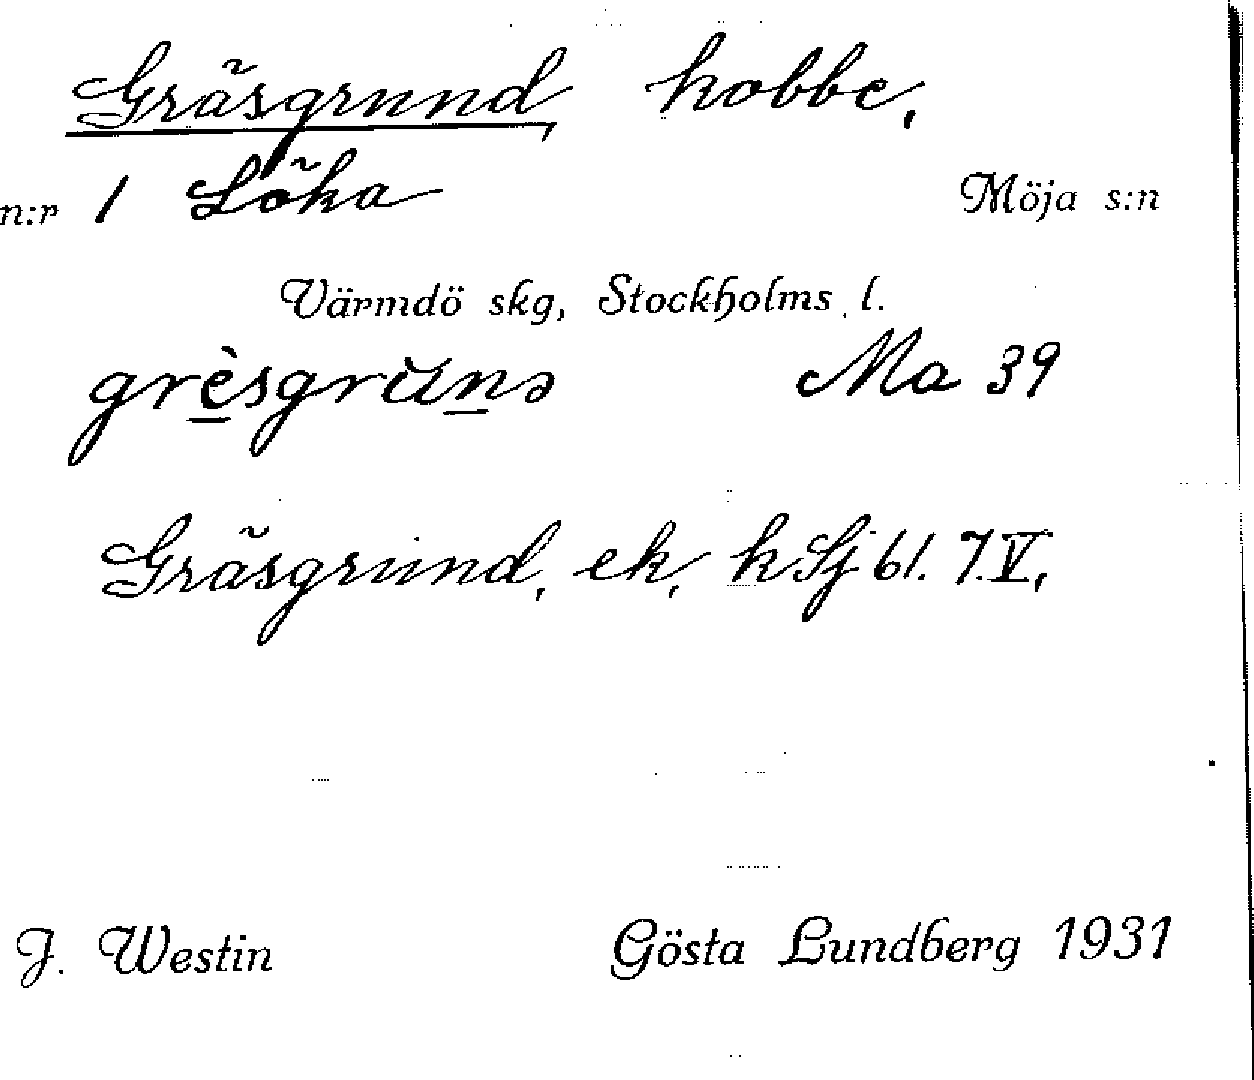 Gräsgrund, kobbe,
n:r 1 Löka Möja s:n
Värmdö skg, Stockholms l.
grèsgrŭnə Ma 39
Gräsgrund, ek, kSj bl. 7.V,
J. Westin Gösta Lundberg 1931